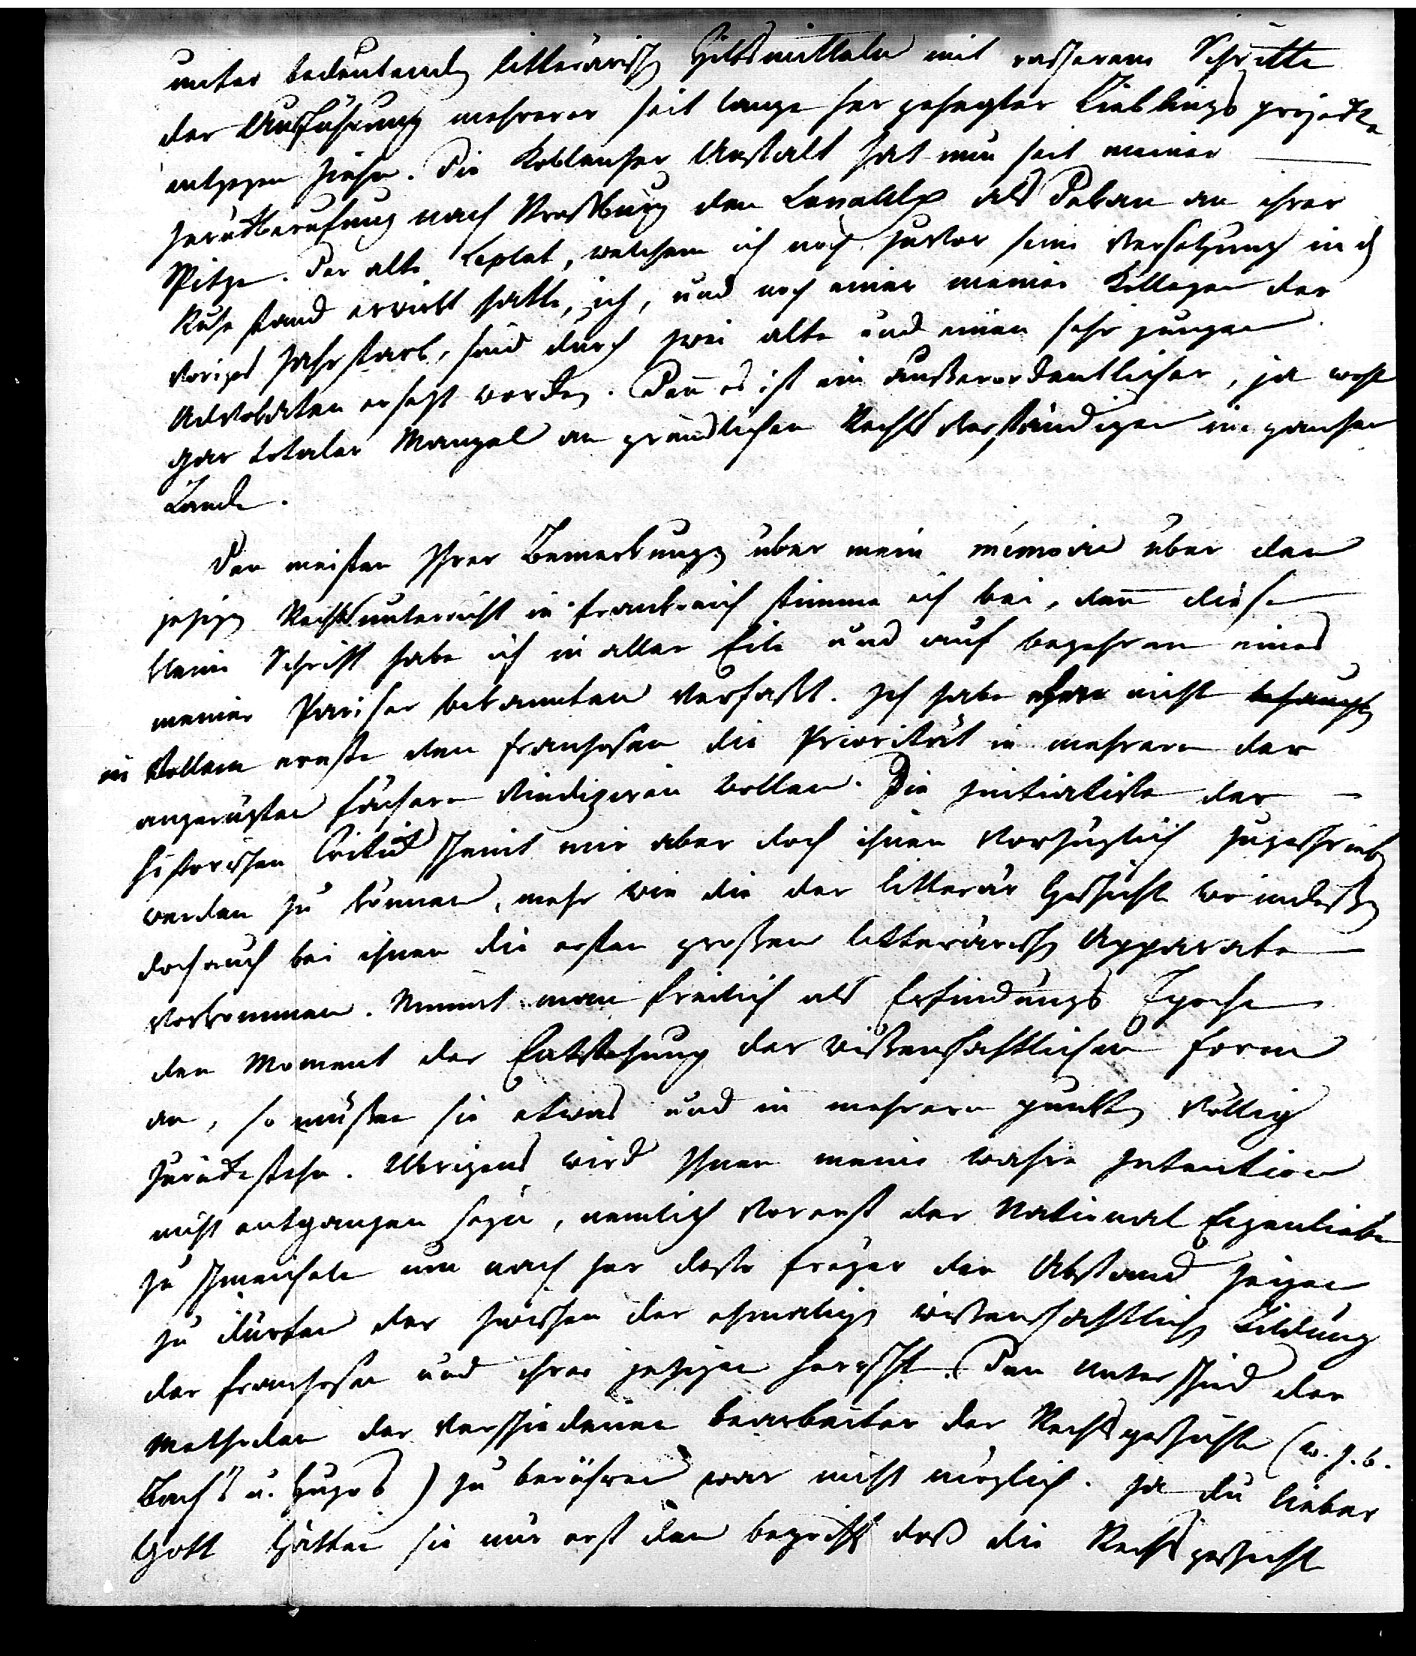 unter bedeutenden litterärisch Hilfsmitteln mit rascherem Schritte
der Ausführung mehrerer seit lange her gehegter Lieblings projekte
entgegen ziehn. Die Koblenzer Anstalt hat nun seit meiner
Zurükberufung nach Straßburg den Lassaulx als Dekan an ihrer
Spitze. Der alte Leplat, welchem ich noch zuvor seine Versetzung in d
Ruhe stand erwirkt hatte, ich, und noch einer meiner Kollegen der
voriges Jahr starb, sind durch zwei alte und einen sehr jungen
Advokaten ersezt worden. Den̄ es ist ein außerordentlicher, ja wohl
gar totaler Mangel an gründlichen Rechts verständigen im ganzen
Lande.
Den meisten Ihrer Bemerkungen über mein mémoire über den
jezigen Rechtsunterricht in frankreich stimme ich bei, den̄ diese
kleine Schrift habe ich in aller Eile und auf begehren eines
meiner Pariser bekannten verfaßt. Ich habe nicht
in vollem ernste den franzosen die Priorität in mehrern der
angerügten fächern vindiziren wollen. Die initiative der
historischen Critik scheint mir aber doch ihnen vorzüglich zugeschrieben
werden zu können, mehr wie die der litterär Geschichte wo indeßen
doch auch bei ihnen die ersten großen litterärischen Apparate
vorkommen. Nimmt man freilich als Erfindungs Epoche
den Moment der Entstehung der wißenschaftlichen form
an, so müßen sie etwas und in mehrern punkten völlig
zurükstehn. Übrigens wird Ihnen meine wahre Intention
nicht entgangen seyn, nemlich vorerst der National Eigenliebe
zu schmeicheln um nach her desto freyer den Abstand zeigen
zu dürfen der zwischen der ehmaligen wissenschaftlichen Bildung
der franzosen und ihrer jezigen herrscht. Den Unterschied der
Methoden der verschiedenen bearbeiter der Rechtsgeschichte (w. z. b.
Bach's u. Hugos) zu berühren war nicht möglich. Ja du lieber
Gott Hätten sie nur erst den begriff daß die Rechts geschichte